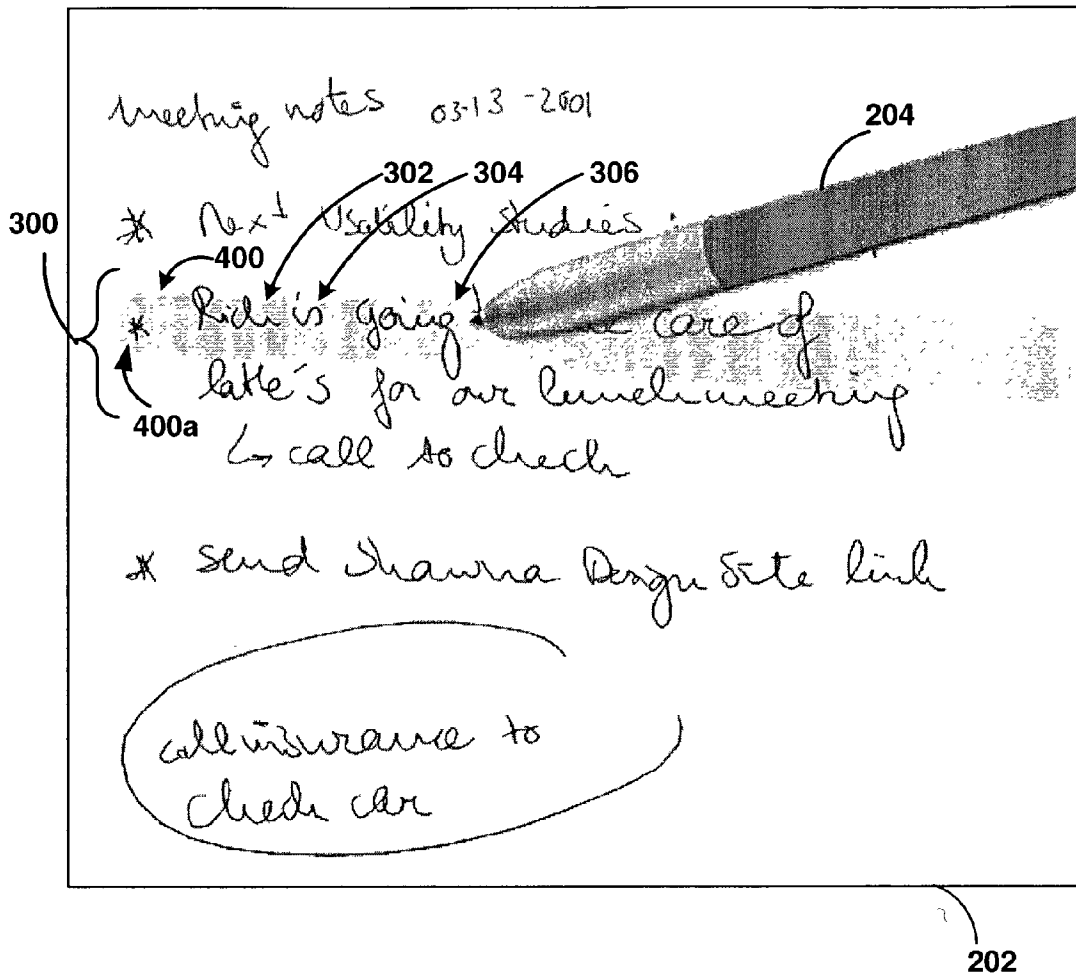 meeting notes 03-13-2001
204
302 304 306
300 * Next Usability Studies
400
* Rich is going care of
400a latte's for our lunch meeting
↳ call to check
* send Shawna Design Site link
call insurance to
check car
202